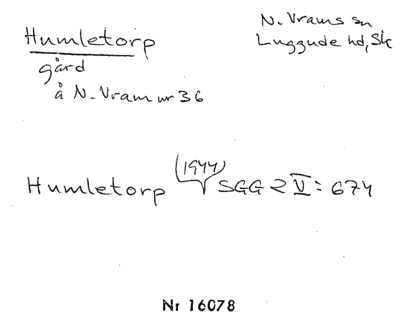 Humletorp
gård
å N. Vram nr 36
N. Vrams sn
Luggude hd, Sk
(1944)
Humletorp SGG 2 V: 674
Nr 16078